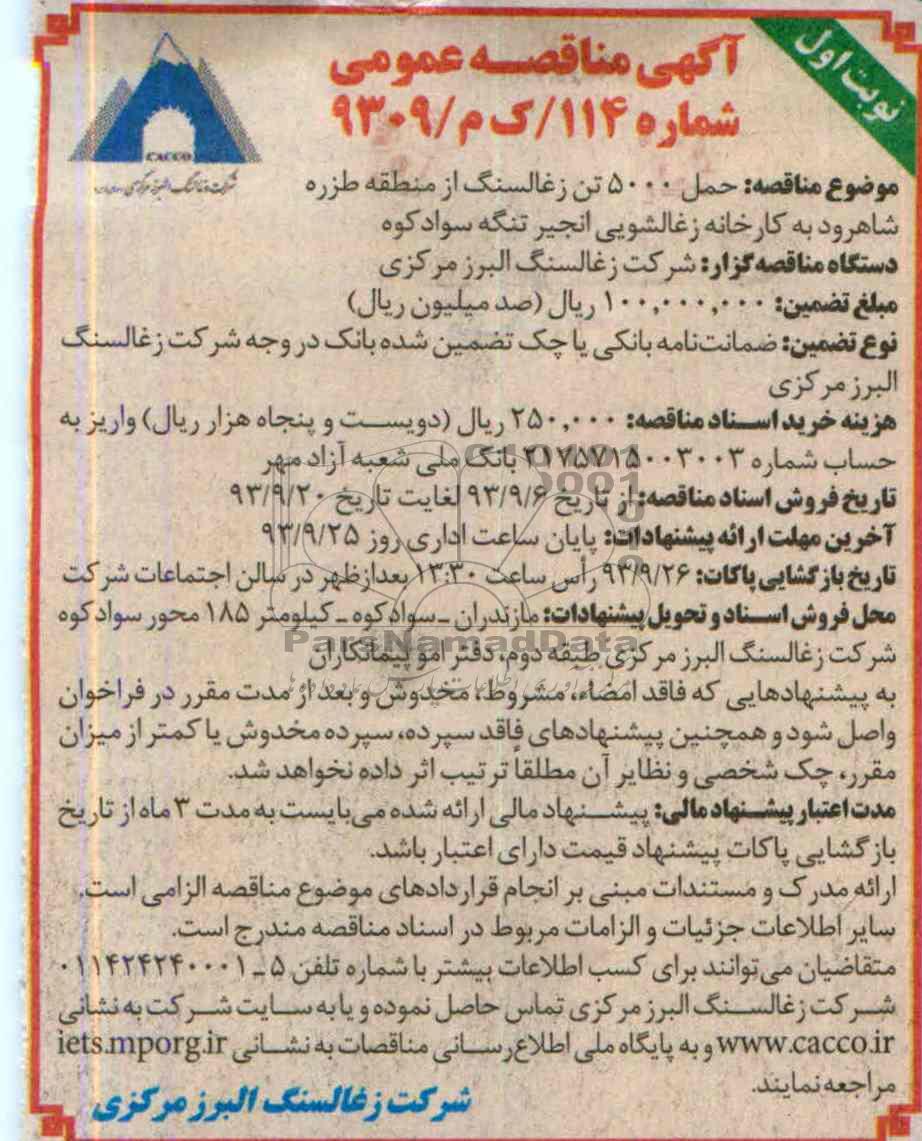 نوبت اول
آگهی مناقصه عمومی
شماره ۱۱۴/ک م/۹۳۰۹
CACCO
شرکت زغالسنگ البرز مرکزی
موضوع مناقصه: حمل ۵۰۰۰ تن زغالسنگ از منطقه طزره
شاهرود به کارخانه زغالشویی انجیر تنگه سوادکوه
دستگاه مناقصه‌گزار: شرکت زغالسنگ البرز مرکزی
مبلغ تضمین: ۱۰۰,۰۰۰,۰۰۰ ریال (صد میلیون ریال)
نوع تضمین: ضمانت‌نامه بانکی یا چک تضمین شده بانک در وجه شرکت زغالسنگ
البرز مرکزی
هزینه خرید اسناد مناقصه: ۲۵۰,۰۰۰ ریال (دویست و پنجاه هزار ریال) واریز به
حساب شماره ۲۱۷۵۷۱۵۰۰۳۰۰۳ بانک ملی شعبه آزاد مهر
تاریخ فروش اسناد مناقصه: از تاریخ ۹۳/۹/۶ لغایت تاریخ ۹۳/۹/۲۰
آخرین مهلت ارائه پیشنهادات: پایان ساعت اداری روز ۹۳/۹/۲۵
تاریخ بازگشایی پاکات: ۹۳/۹/۲۶ رأس ساعت ۱۳:۳۰ بعدازظهر در سالن اجتماعات شرکت
محل فروش اسناد و تحویل پیشنهادات: مازندران ـ سوادکوه ـ کیلومتر ۱۸۵ محور سوادکوه
ParsNamadData
شرکت زغالسنگ البرز مرکزی طبقه دوم، دفتر امو پیمانکاران
به پیشنهادهایی که فاقد امضاء، مشروط، مخدوش و بعد از مدت مقرر در فراخوان
واصل شود و همچنین پیشنهادهای فاقد سپرده، سپرده مخدوش یا کمتر از میزان
مقرر، چک شخصی و نظایر آن مطلقا ترتیب اثر داده نخواهد شد.
مدت اعتبار پیشنهاد مالی: پیشنهاد مالی ارائه شده می‌بایست به مدت ۳ ماه از تاریخ
بازگشایی پاکات پیشنهاد قیمت دارای اعتبار باشد.
ارائه مدرک و مستندات مبنی بر انجام قراردادهای موضوع مناقصه الزامی است.
سایر اطلاعات جزئیات و الزامات مربوط در اسناد مناقصه مندرج است.
متقاضیان می‌توانند برای کسب اطلاعات بیشتر با شماره تلفن ۵ ـ ۰۱۱۴۲۴۲۴۰۰۰۱
شرکت زغالسنگ البرز مرکزی تماس حاصل نموده و یا به سایت شرکت به نشانی
www.cacco.ir و به پایگاه ملی اطلاع‌رسانی مناقصات به نشانی iets.mporg.ir
مراجعه نمایند.
شرکت زغالسنگ البرز مرکزی